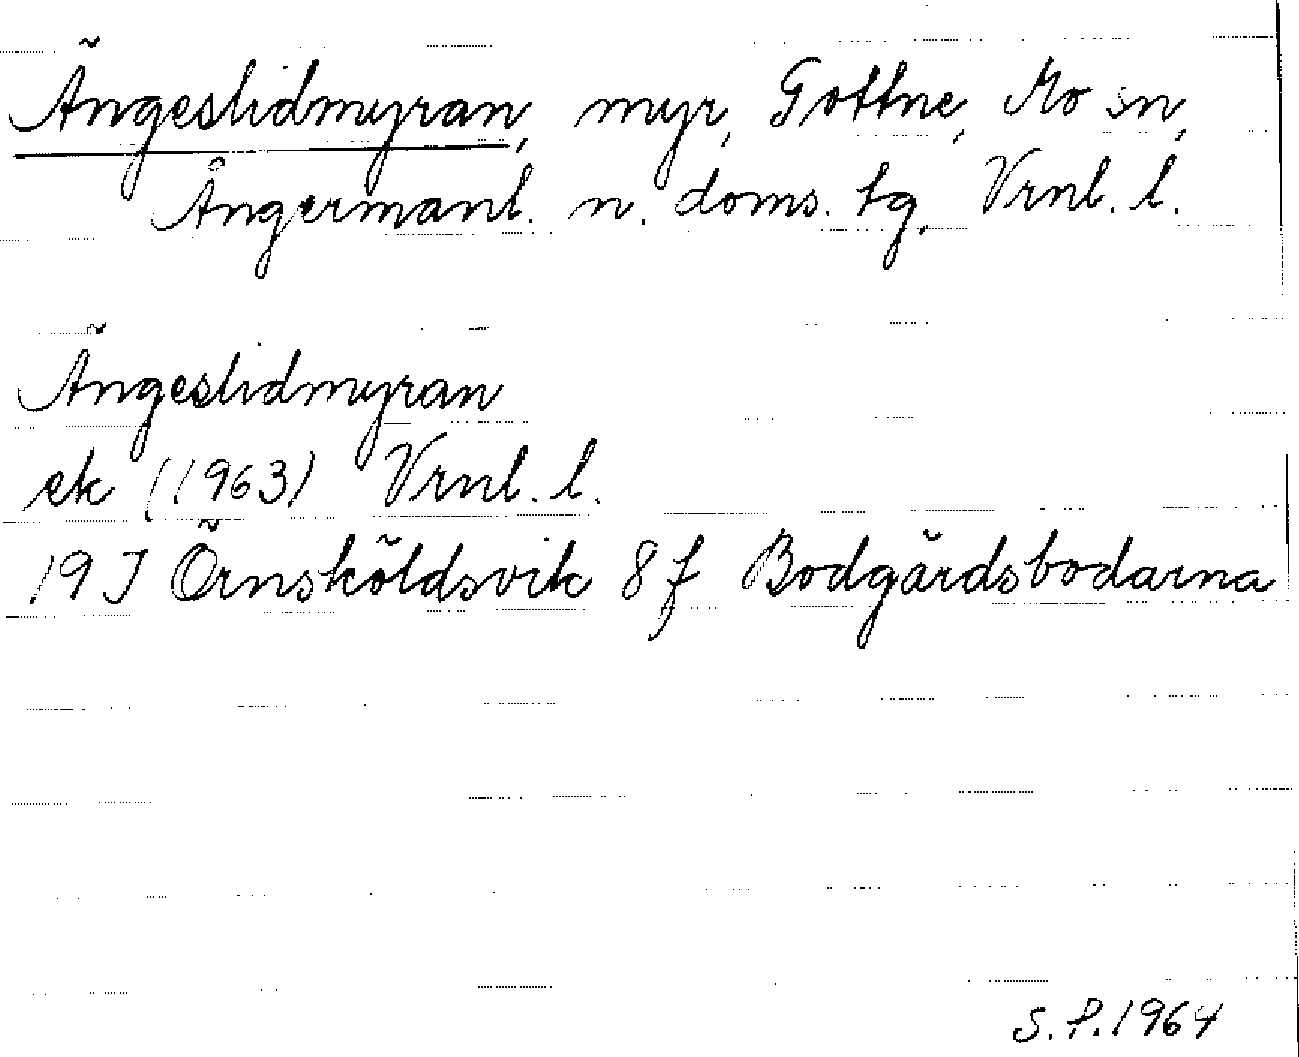 Ängeslidmyran, myr, Gottne, Mo sn,
Ångermanl. n. doms. tg, Vrnl. l.
Ängeslidmyran
ek (1963) Vrnl. l.
19 J Örnsköldsvik 8 f Bodgårdsbodarna
S. P. 1964